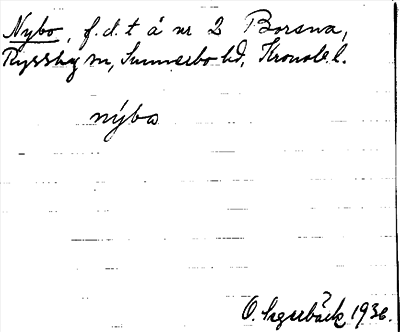 Nybo, f.d.t å nr 2 Borsna,
Ryssby sn, Sunnerbo hd, Kronob. l.
nýbo
O. 1936.